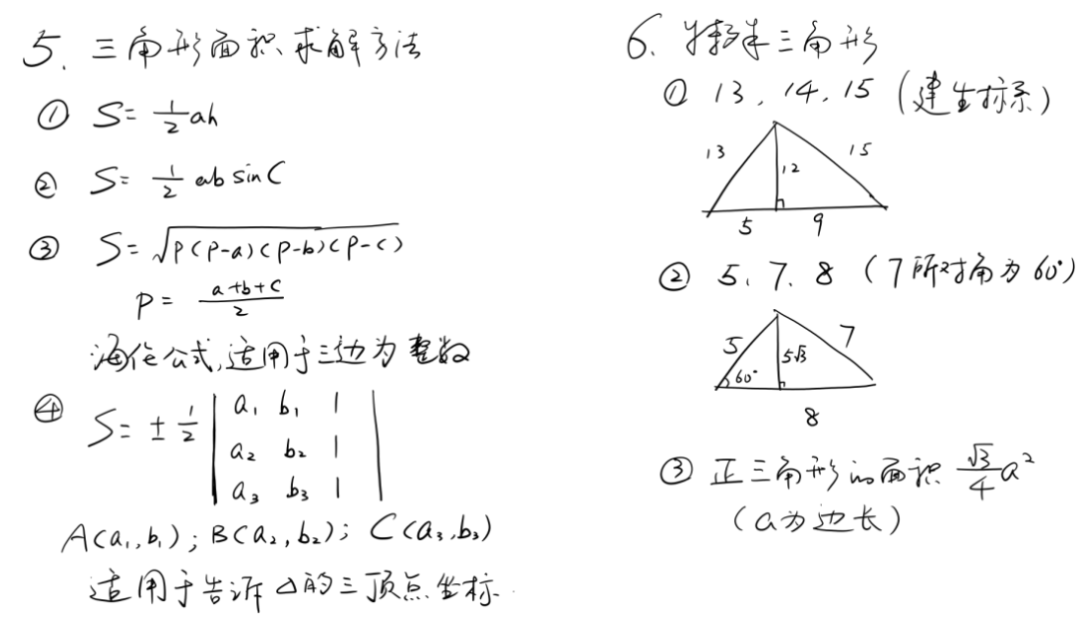 5. 三角形面积求解方法
① S= 1/2 ah
② S= 1/2 ab sinC
③ S= √P(P-a)(P-b)(P-c)
P= a+b+c/2
海伦公式,适用于三边为整数
④ S= ± 1/2 | a₁ b₁ 1 |
a₂ b₂ 1
a₃ b₃ 1
A(a₁,b₁); B(a₂,b₂); C(a₃,b₃)
适用于告诉△的三顶点坐标.
6. 特殊三角形
① 13, 14, 15 (建坐标系)
13 12 15
5 9
② 5, 7, 8 (7所对角为60°)
5 5√3 7
60°
8
③ 正三角形的面积 √3/4 a²
(a为边长)